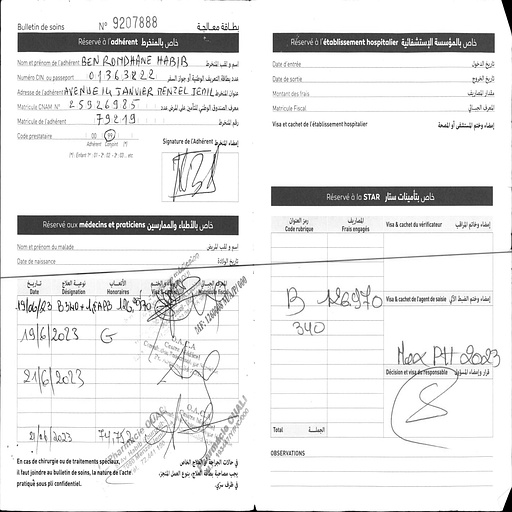 Bulletin de soins N° 9207888 بطاقة معالجة
Réservé à l'adhérent خاص بالمنخرط
Nom et prénom de l'adhérent BEN ROMDHANE HABIB اسم و لقب المنخرط
Numéro CIN ou passeport 01363822 عدد بطاقة التعريف الوطنية أو جواز السفر
Adresse de l'adhérent AVENUE 14 JANVIER MENZEL JEMIL عنوان المنخرط
Matricule CNAM N° 25926985 معرف الصندوق الوطني للتأمين على المرض عدد
Matricule de l'adhérent 79219 رقم المنخرط
Code prestataire 00 99
Adhérent Conjoint (*)
(*) : Enfant 1er : 01 - 2e : 02 - 3e : 03 ... etc
Signature de l'Adhérent إمضاء المنخرط
Réservé aux médecins et praticiens خاص بالأطباء والممارسين
Nom et prénom du malade اسم و لقب المريض
Date de naissance تاريخ الولادة
تاريخ نوعية العلاج الأتعاب
Date Désignation Honoraires
19/06/23 B340+
19/6/2023 G
21/6/2023
21/06/2023 74,752
En cas de chirurgie ou de traitements spéciaux,
il faut joindre au bulletin de soins, la nature de l'acte
pratiqué sous pli confidentiel.
في حالات الجراحة أو العلاج الخاص
يجب مصاحبة بطاقة العلاج، بنوع العمل المنجز،
في ظرف سري.
Réservé à l'établissement hospitalier خاص بالمؤسسة الإستشفائية
Date d'entrée تاريخ الدخول
Date de sortie تاريخ الخروج
Montant des frais مقدار المصاريف
Matricule Fiscal المعرف الجبائي
Visa et cachet de l'établissement hospitalier إمضاء وختم المستشفى أو المصحة
Réservé à la STAR خاص بتأمينات ستار
رمز العنوان المصاريف
Code rubrique Frais engagés Visa & cachet du vérificateur إمضاء وخاتم المراقب
B 126970 Visa & cachet de l'agent de saisie
340
Max PH 2023
Décision et visa du responsable قرار وإمضاء المسؤول
Total الجملة
OBSERVATIONS